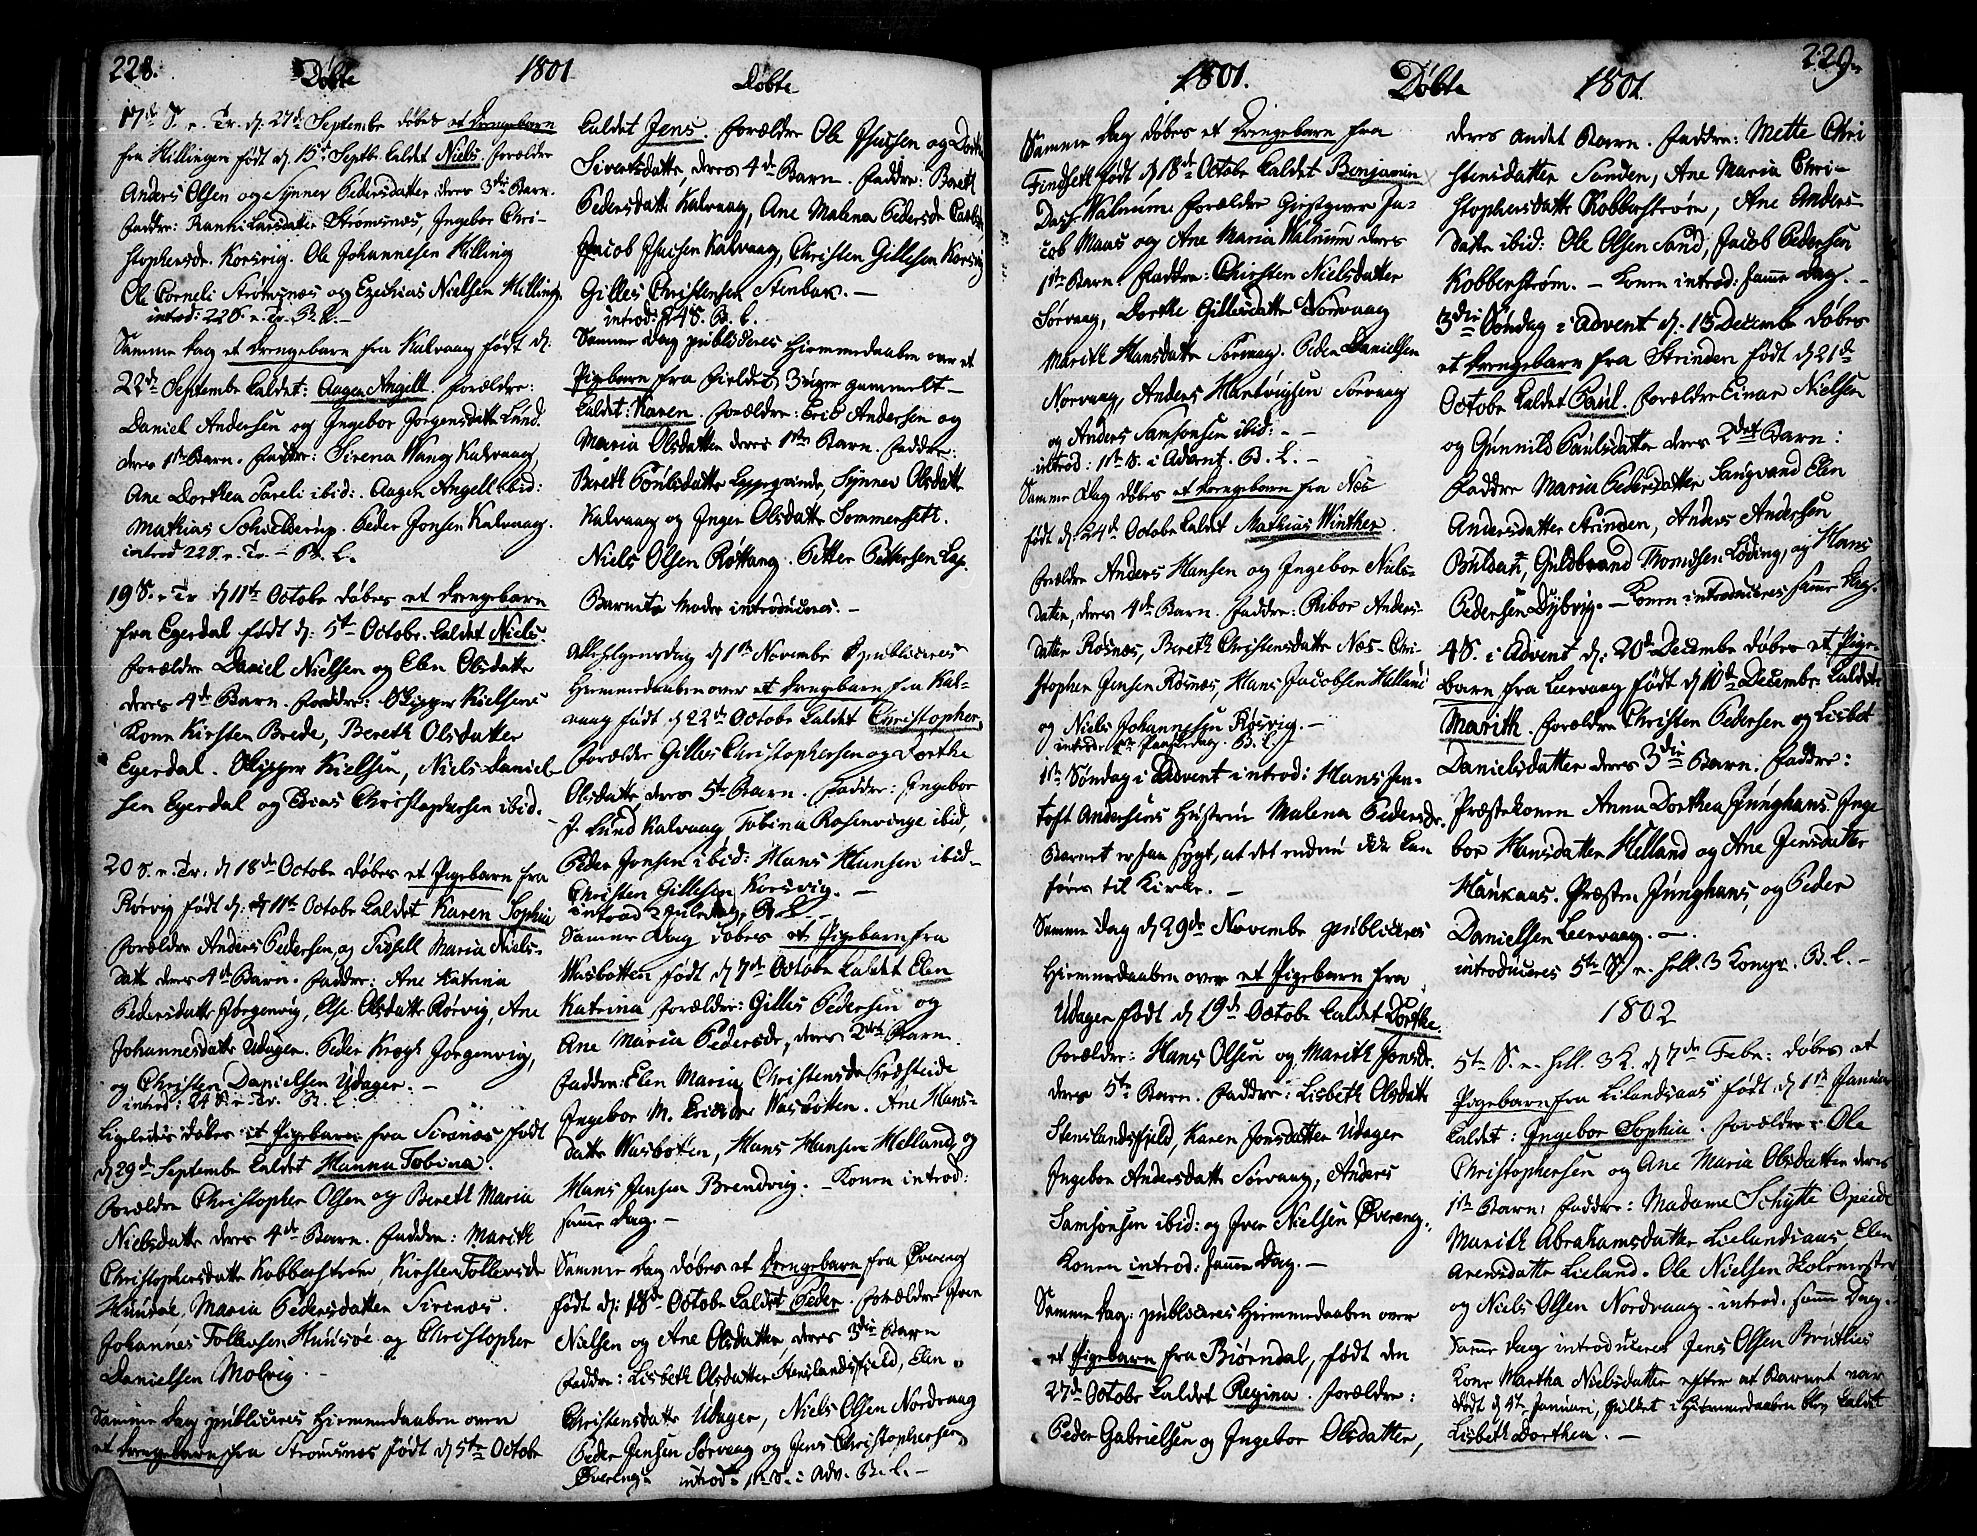 228.
Døbte
1801
Døbte
17de S. e. Tr. d. 27de Septembr døbes et Drengebarn
fra Hillingen født d. 15de Septbr. kaldet Niels. Forældre
Anders Olsen og Synnev Pedersdatter deres 3die Barn.
Faddre: Ranni Larsdatter Strømsnæs, Ingebor Chri-
stophersdr. Korsvig. Ole Johannesen Hilling
Ole Corneli Strømsnæs og Ezechias Nielsen Hilling.
introd: 22 S. e. Tr. B. L. –
Samme Dag et Drengebarn fra Kalvaag født d.
22de Septembr kaldet: Aagen Angell. Forældre:
Daniel Andersen og Ingebor Jørgensdatter Lund.
deres 1ste Barn. Faddre: Sirena Wang Kalvaag,
Ane Dorthea Pareli ibid: Aagen Angell ibid:
Mathias Schielderup. Peder Jonsen Kalvaag.
introd 22 S. e. Tr. – B. L.
19 S. e. Tr. d 11te Octobr døbes et Drengebarn
fra Egerdal født d: 5te Octobr. kaldet Niels.
Forældre Daniel Nielsen og Elen Olsdatter
deres 4de Barn. Faddre: Skipper Kielsens
Kone Kirsten Brede, Bereth Olsdatter
Egerdal. Skipper Kielsen, Niels Daniel-
sen Egerdal og Tobias Christophersen ibid. –
20 S. e. Tr. d 18de Octobr døbes et Pigebarn fra
Rørvig født d: 11te Octobr kaldet Karen Sophia
Forældre Anders Pedersen og Sisell Maria Niels-
datt. deres 4de Barn. Faddre: Ane Katrina
Pedersdatter Jørgenvig, Else Olsdatter Rørvig, Ane
Johannesdatter Udager. Peder Krogh Jørgenvig,
og Christen Danielsen Udager. –
introd: 24 S. e. Tr. B. L.
Ligeledes døbes et Pigebarn fra Sirenæs født
d 29de Septembr kaldet Hanna Tobina.
Forældre Christopher Olsen og Bereth Maria
Nielsdatter deres 4de Barn. Faddre: Marith
Christophersdatter Kobberstrøm, Kirsten Tollevsdr
Hundøe, Maria Pedersdatter Sirenæs.
Johannes Tollevsen Hundøe og Christopher
Danielsen Molvig. –
Samme Dag publiceres Hiemmedaaben over
et Drengebarn fra Strømsnæs født d 5te Octobr
kaldet Jens. Forældre Ole Isacsen og Dorthe
Sivertsdatter, deres 4de Barn. Faddre: Bereth
Pedersdatter Kalvaag, Ane Malena Pedersdr
Jacob Isacsen Kalvaag, Christen Gillesen Korsvig
Gilles Christensen Stenbak. –
introd: 4 S. B. L.
Samme Dag publiceres Hiemmedaaben over et
Pigebarn fra Fieldet 3 uger gammelt –
kaldet: Karen. Forældre: Erich Andersen og
Maria Olsdatter deres 1ste Barn. Faddre:
Bereth Poulsdatter Leppegrinde, Synnev Olsdatter
Kalvaag og Inger Olsdatter Sommerseth.
Niels Olsen Røttang. Petter Pettersen Lap.
Barnets Moder introduceres. –
Allehelgensdag d 1ste Novembr publiceres
Hiemmedaaben over et Drengebarn fra Kal-
vaag født d 22de Octobr kaldet Christopher,
Forældre Gilles Christophersen og Dorthe
Olsdatter deres 5te Barn. Faddre: Ingebor
J. Lund Kalvaag Tobina Rosenvinge ibid,
Peder Jonsen ibid: Hans Hansen ibid –
Christen Gillesen Korsvig. –
introd 2 Juledag, B. L.
Samme Dag døbes et Pigebarn fra
Wasbotten født d 7de Octobr kaldet Elen
Katrina Forældre: Gilles Pedersen og
Ane Maria Pedersdr, deres 2det Barn.
Faddre: Elen Maria Christensdr Præsteide
Ingebor M. Ericsdr Wasbotten. Ane Hans-
datter Wasboten, Hans Hansen Helland og
Hans Jensen Brendvig. – Konen introd:
samme Dag. –
Samme Dag døbes et Drengebarn fra Øvereng
født d: 18de Octobr kaldet Peder. Forældre Iver
Nielsen og Ane Olsdatter deres 3die Barn
Faddre: Lisbeth Olsdatter Stenslandsfield, Elen
Christensdatter Udager, Niels Olsen Nordvaag
Peder Jensen Sørvaag og Jens Christophersen
Øvereng. introd: 1ste S. i Adv. B. L. –
229.
1801.
Døbte
1801
Samme Dag døbes et Drengebarn fra
Findseth født d 18de Octobr kaldet Benjamin
Dass Walnum. Forældre Giestgiver Ja-
cob Maas og Ane Maria Walnum deres
1ste Barn. Faddre: Chirsten Nielsdatter
Sørvaag, Dorthe Gillesdatter Nordvaag
Marith Hansdatter Sørvaag. Peder Danielsen
Norvaag, Anders Hartvigsen Sørvaag
og Anders Samsonsen ibid: –
introd: 1ste S. i Advent. B. L. –
Samme Dag døbes et Drengebarn fra Næs
født d. 24de Octobr kaldet Mathias Winther.
Forældre Anders Hansen og Ingebor Niels-
datter, deres 4de Barn. Faddre: Rebor Anders-
datter Røsnæs, Bereth Christensdatter Næs – Chri-
stopher Jensen Røsnæs, Hans Jacobsen Helland
og Niels Johannesen Røsvig. –
introd: B. L.
1ste Søndag i Advent introd: Hans Jen-
toft Andersens Hustrue Malena Pedersdr.
Barnet er saa sygt, at det endnu ikke kan
føres til Kirke. –
Samme Dag d 29de Novembr publiceres
Hiemmedaaben over et Pigebarn fra
Udager født d 19de Octobr kaldet Dorthe.
Forældre: Hans Olsen og Marith Jonsdr.
deres 5te Barn. Faddre: Lisbeth Olsdatter
Stenslandsfield, Karen Jonsdatter Udager
Ingebor Andersdatter Sørvaag, Anders
Samsonsen ibid: og Iver Nielsen Øvereng.
Konen introd: samme Dag. –
Samme Dag: publiceres Hiemmedaaben over
et Pigebarn fra Biørndal, født den
27de Octobr kaldet Regina. Forældre:
Peder Gabrielsen og Ingebor Olsdatter,
deres andet Barn. Faddre: Mette Chri
stensdatter Sanden, Ane Maria Chri-
stophersdatter Kobberstrøm, Ane Anders-
datter ibid: Ole Olsen Sand, Jacob Pedersen
Kobberstrøm. – Konen introd: samme Dag. –
3die Søndag i Advent d. 13 Decembr døbes
et Drengebarn fra Strinden født d 21de
Octobr kaldet Paul. Forældre Einar Nielsen
og Gunnild Paulsdatter deres 2det Barn:
Faddre Maria Pedersdatter Langvand Elen
Andersdatter Strinden, Anders Andersen
Buldan, Guldbrand Thomesen Løding, og Hans
Pedersen Dybvig. – Konen introduceres samme Dag.
4 S. i Advent d: 20de Decembr døbes et Pige-
barn fra Leervaag født d 10de Decembr kaldet
Marith. Forældre Christen Pedersen og Lisbet
Danielsdatter deres 3die Barn. Faddre:
Præstekonen Anna Dorthea Junghans. Inge
bor Hansdatter Helland og Ane Jensdatter
Haukaas. Præsten Junghans, og Peder
Danielsen Leervaag. –
introduceres 5te S. e. hell. 3 Konger. B. L. –
1802
5te S. e. hell. 3 K. d 7de Febr: døbes et
Pigebarn fra Lilandsaas født d 1ste Januar
kaldet: Ingebor Sophia. Forældre: Ole
Christophersen og Ane Maria Olsdatter deres
1ste Barn. Faddre: Madame Schytte Opeide
Marith Abrahamsdatter Lielandsaas Elen
Arensdatter Lieland. Ole Nielsen Skolemester,
og Niels Olsen Nordvaag. introd. samme Dag.
Samme Dag introduceres Jens Olsen Brutlies
Kone Martha Nielsdatter efter at Barnet var
født d 5te Januari, hvilket i Hiemmedaaben blev kaldt
Lisbeth Dorthea. –